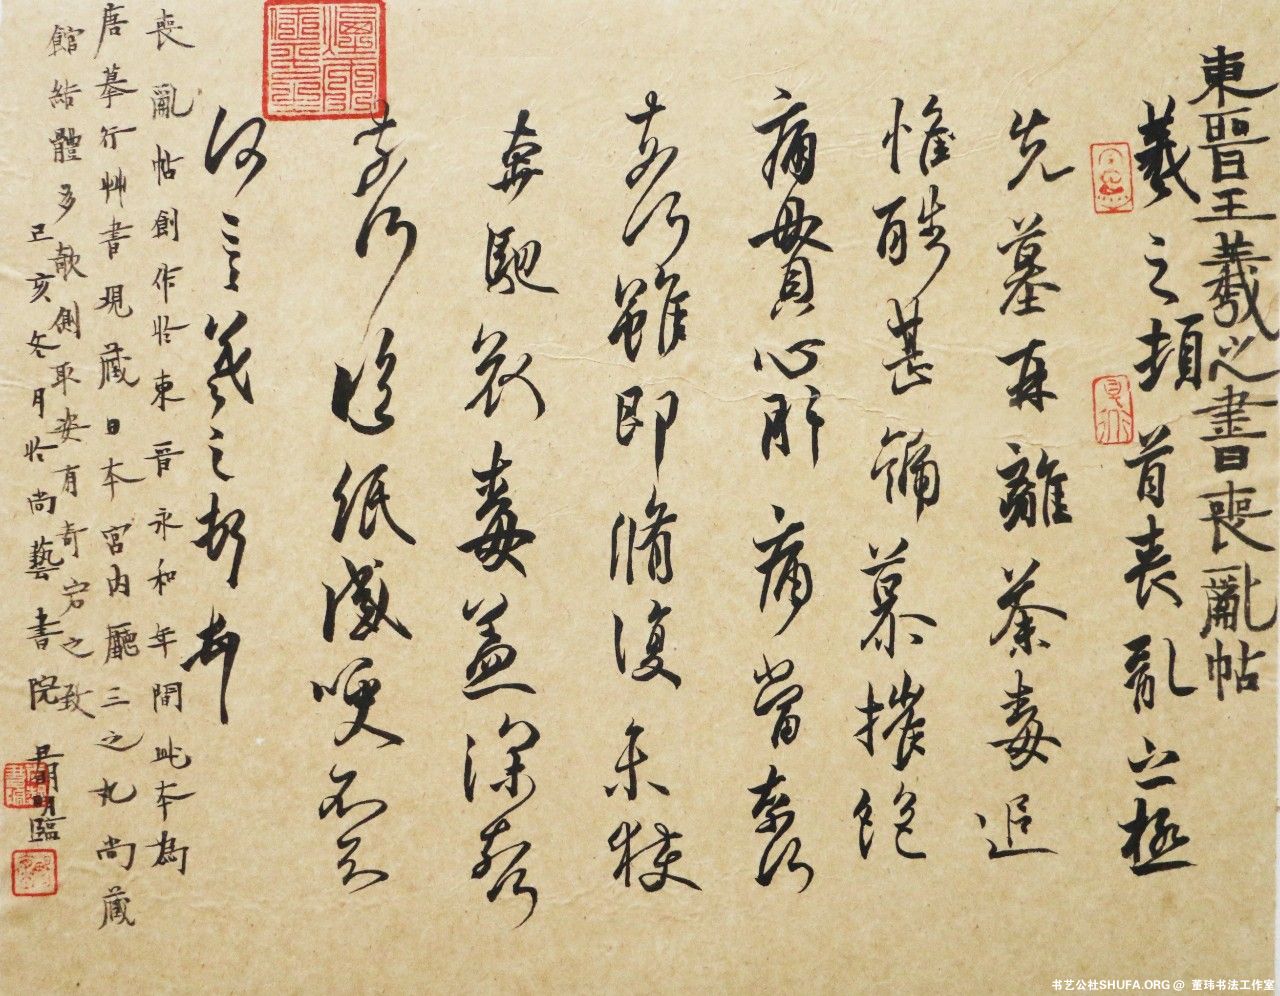 東晉王羲之書喪亂帖
羲之頓首喪亂之極
先墓再離荼毒追
惟酷甚號慕摧絕
痛貫心肝痛當柰何
柰何雖即脩復未獲
奔馳哀毒益深柰何
柰何臨紙感哽不知
何言羲之頓首
喪亂帖創作於東晉永和年間此本為
唐摹行艸書現藏日本宮內廳三之丸尚藏
館結體多欹側取姿有奇宕之致
己亥冬月於尚藝書院 明臨
书艺公社SHUFA.ORG @ 董玮书法工作室